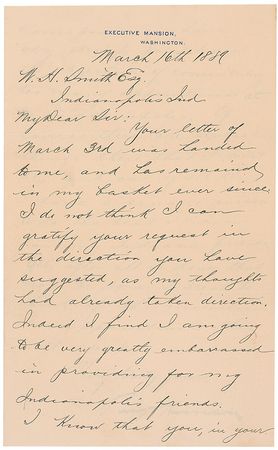 EXECUTIVE MANSION,
WASHINGTON.
March 16th 1889
W. H. Smith Esq.
Indianapolis Ind
My Dear Sir:
Your letter of
March 3rd was handed
to me, and has remained
in my basket ever since
I do not think I can
gratify your request in
the direction you have
suggested, as my thoughts
had already taken direction.
Indeed I find I am going
to be very greatly embarrassed
in providing for my
Indianapolis friends.
I know that you, in your